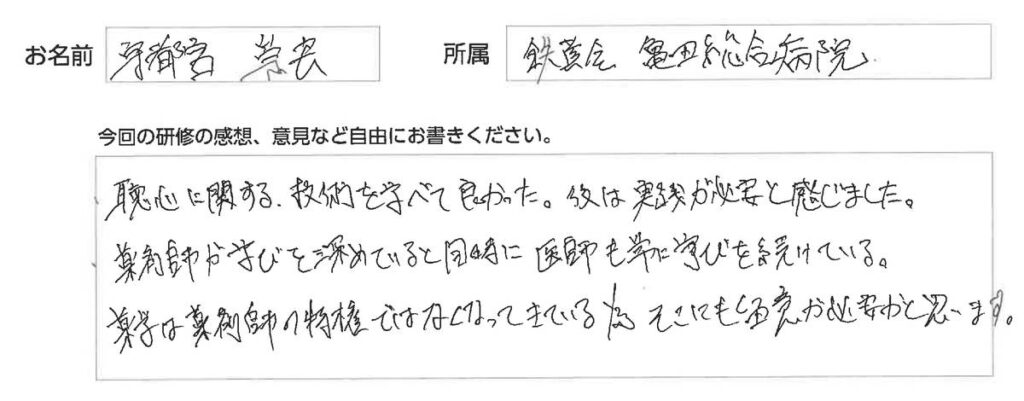 お名前 牙都宮 崇宏 所属 鉄蕉会 亀田総合病院
今回の研修の感想、意見など自由にお書きください。
聴心に関する、技術を学べて良かった。後は実践が必要と感じました。
薬剤師が学びを深めていると同時に医師も常に学びを続けている。
薬学は薬剤師の特権ではなくなってきている為そこにも留意が必要かと思います。